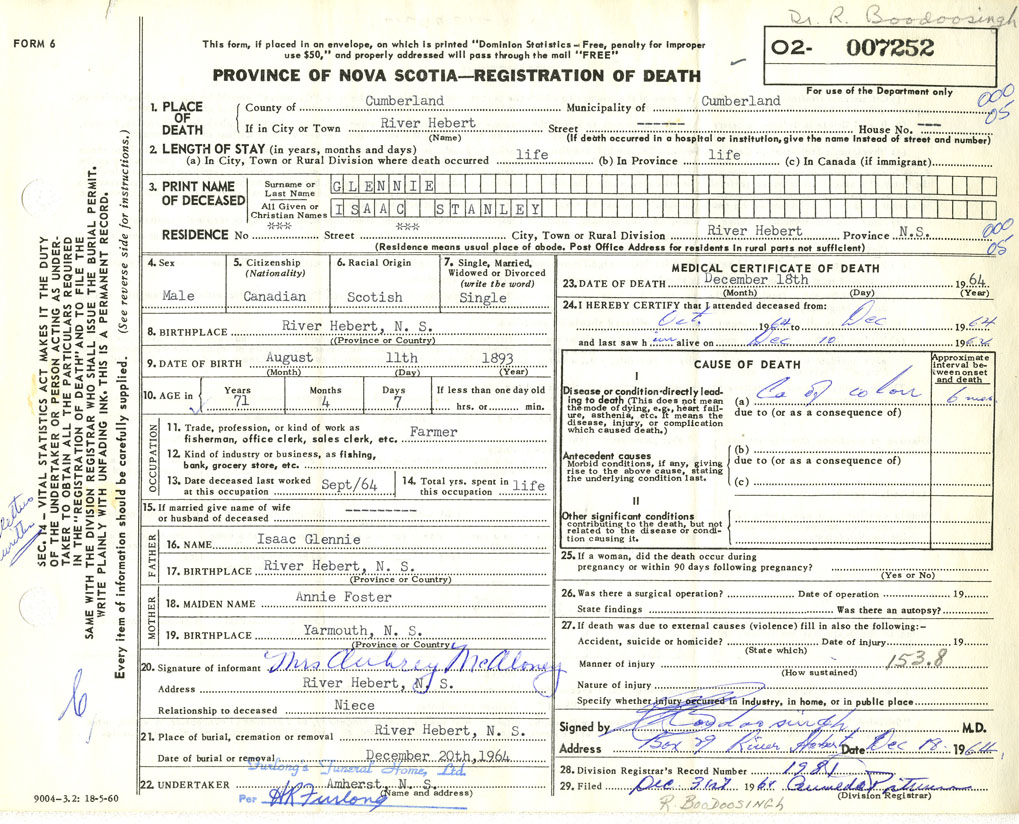 Dr. R. Boodoosingh
FORM 6
This form, if placed in an envelope, on which is printed "Dominion Statistics – Free, penalty for improper
use $50," and properly addressed will pass through the mail "FREE"
02- 007252
For use of the Department only
PROVINCE OF NOVA SCOTIA—REGISTRATION OF DEATH
1. PLACE OF DEATH
County of Cumberland Municipality of Cumberland 000
If in City or Town River Hebert Street ------ House No. --- 05
(Name) (If death occurred in a hospital or institution, give the name instead of street and number)
2. LENGTH OF STAY (in years, months and days)
(a) In City, Town or Rural Division where death occurred life (b) In Province life (c) In Canada (if immigrant)
3. PRINT NAME OF DECEASED
Surname or Last Name GLENNIE
All Given or Christian Names ISAAC STANLEY
RESIDENCE No *** Street *** City, Town or Rural Division River Hebert Province N.S. 000
(Residence means usual place of abode. Post Office Address for residents in rural parts not sufficient) 05
4. Sex
Male
5. Citizenship
(Nationality)
Canadian
6. Racial Origin
Scotish
7. Single, Married,
Widowed or Divorced
(write the word)
Single
8. BIRTHPLACE River Hebert, N. S.
((Province or Country)
9. DATE OF BIRTH August 11th 1893
(Month) (Day) (Year)
10. AGE in
Years Months Days If less than one day old
71 4 7 hrs. or min.
OCCUPATION
11. Trade, profession, or kind of work as
fisherman, office clerk, sales clerk, etc. Farmer
12. Kind of industry or business, as fishing,
bank, grocery store, etc.
13. Date deceased last worked
at this occupation Sept/64
14. Total yrs. spent in
this occupation life
15. If married give name of wife
or husband of deceased ---------
FATHER
16. NAME Isaac Glennie
17. BIRTHPLACE River Hebert, N. S.
(Province or Country)
MOTHER
18. MAIDEN NAME Annie Foster
19. BIRTHPLACE Yarmouth, N. S.
(Province or Country)
20. Signature of informant Mrs Aubrey McAloney
Address River Hebert, N. S.
Relationship to deceased Niece
21. Place of burial, cremation or removal River Hebert, N. S.
Date of burial or removal December 20th, 1964
Furlong's Funeral Home, Ltd.
22. UNDERTAKER Amherst, N. S.
(Name and address)
Per H R Furlong
MEDICAL CERTIFICATE OF DEATH
23. DATE OF DEATH December 18th 1964
(Month) (Day) (Year)
24. I HEREBY CERTIFY that I attended deceased from:
Oct. 1964 to Dec 1964
and last saw him alive on Dec 10 19
CAUSE OF DEATH
Approximate
interval be-
tween onset
and death
I
Disease or condition directly lead-
ing to death (This does not mean
the mode of dying, e.g., heart fail-
ure, asthenia, etc. It means the
disease, injury, or complication
which caused death.)
(a) Ca of colon 6 mos
due to (or as a consequence of)
Antecedent causes
Morbid conditions, if any, giving
rise to the above cause, stating
the underlying condition last.
(b)
due to (or as a consequence of)
(c)
II
Other significant conditions
contributing to the death, but not
related to the disease or condi-
tion causing it.
25. If a woman, did the death occur during
pregnancy or within 90 days following pregnancy?
(Yes or No)
26. Was there a surgical operation? Date of operation 19
State findings Was there an autopsy?
27. If death was due to external causes (violence) fill in also the following:-
Accident, suicide or homicide? Date of injury 19
(State which)
Manner of injury 153.8
(How sustained)
Nature of injury
Specify whether injury occurred in industry, in home, or in public place
Signed by R Boodoosingh M.D.
Address Box 29 River Hebert Date Dec 18 1964
28. Division Registrar's Record Number 1981
29. Filed Dec 31st 1964
(Division Registrar)
R. BOODOOSINGH
SEC. 14 – VITAL STATISTICS ACT MAKES IT THE DUTY
OF THE UNDERTAKER OR PERSON ACTING AS UNDER-
TAKER TO OBTAIN ALL THE PARTICULARS REQUIRED
IN THE "REGISTRATION OF DEATH" AND TO FILE THE
SAME WITH THE DIVISION REGISTRAR WHO SHALL ISSUE THE BURIAL PERMIT.
WRITE PLAINLY WITH UNFADING INK. THIS IS A PERMANENT RECORD.
Every item of information should be carefully supplied. (See reverse side for instructions.)
9004-3.2: 18-5-60